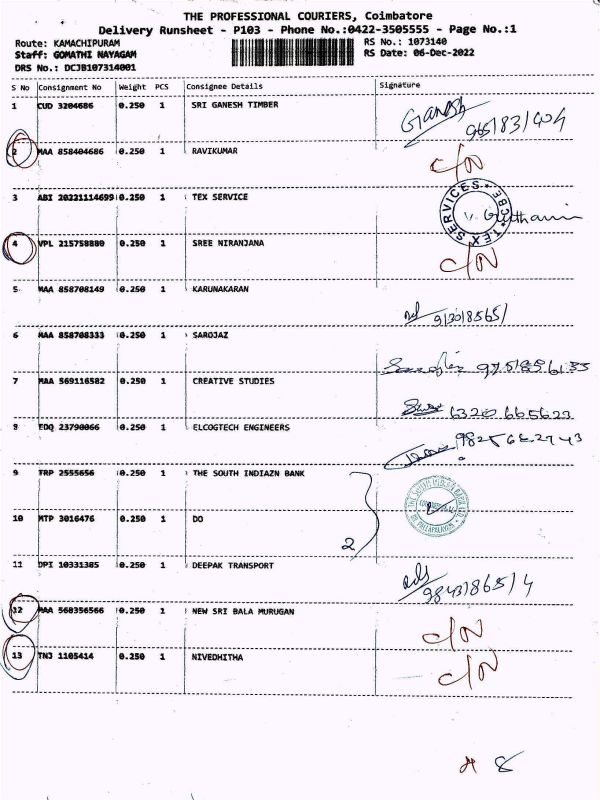 THE PROFESSIONAL COURIERS, Coimbatore
Delivery Runsheet - P103 - Phone No.:0422-3505555 - Page No.:1
Route: KAMACHIPURAM RS No.: 1073140
Staff: GOMATHI NAYAGAM RS Date: 06-Dec-2022
DRS No.: DCJB107314001
S No Consignment No Weight PCS Consignee Details Signature
1 CUD 3204686 0.250 1 SRI GANESH TIMBER
Ganesh
2 MAA 858404686 0.250 1 RAVIKUMAR
C/N
3 ABI 20221114699 0.250 1 TEX SERVICE
TEX SERVICES
4 VPL 215758880 0.250 1 SREE NIRANJANA
C/N
5 MAA 858708149 0.250 1 KARUNAKARAN
6 MAA 858708333 0.250 1 SAROJAZ
7 MAA 569116582 0.250 1 CREATIVE STUDIES
8 EDQ 23790066 0.250 1 ELCOGTECH ENGINEERS
9 TRP 2555656 0.250 1 THE SOUTH INDIAZN BANK
10 MTP 3016476 0.250 1 DO
2
11 DPI 10331385 0.250 1 DEEPAK TRANSPORT
12 MAA 568356566 0.250 1 NEW SRI BALA MURUGAN
C/N
13 TNJ 1105414 0.250 1 NIVEDHITHA
C/N
8